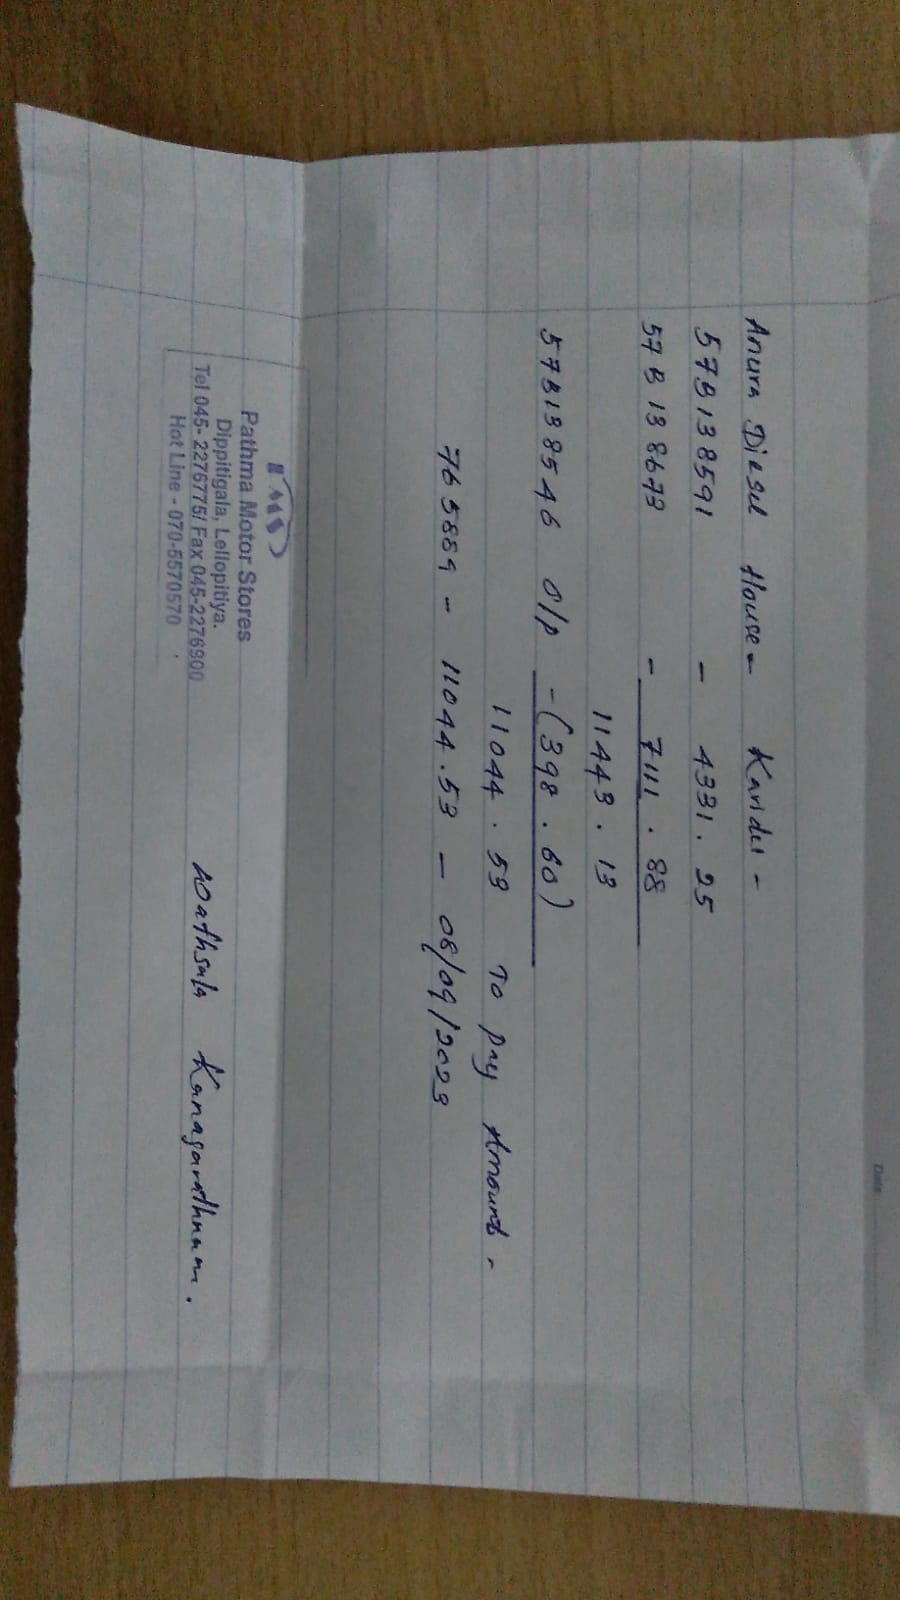 Anura Diesel House - Kandy -
57B138591 - 4331.25
57B138673 - 7111.88
11443.13
57B138546 O/P - (398.60)
11044.53 To pay Amount -
765889 - 11044.53 - 08/09/2023
PMS
Pathma Motor Stores
Dippitigala, Lellopitiya.
Tel 045- 2276775/ Fax 045-2276900
Hot Line - 070-5570570
Wathsala Kanagarathnam.
Date